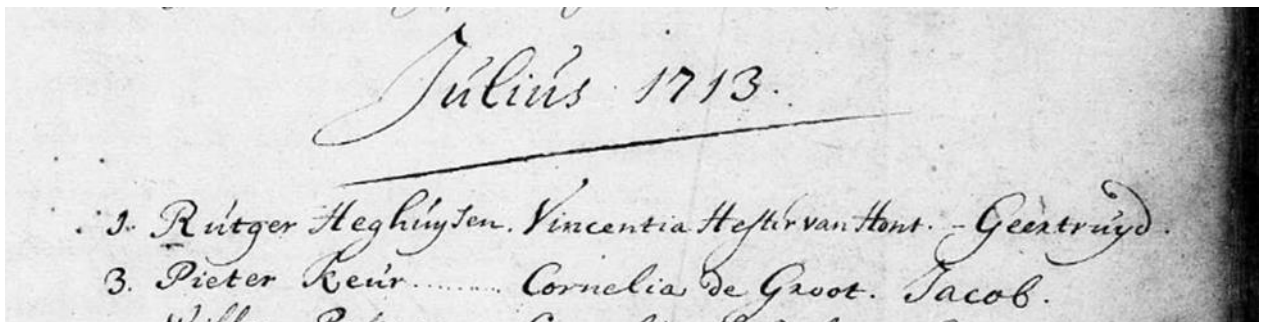 Julius 1713.
1. Rutger Heghuysen. Vincentia Hester van Hont. - Geertruyd.
3. Pieter Keur......... Cornelia de Groot. Jacob.